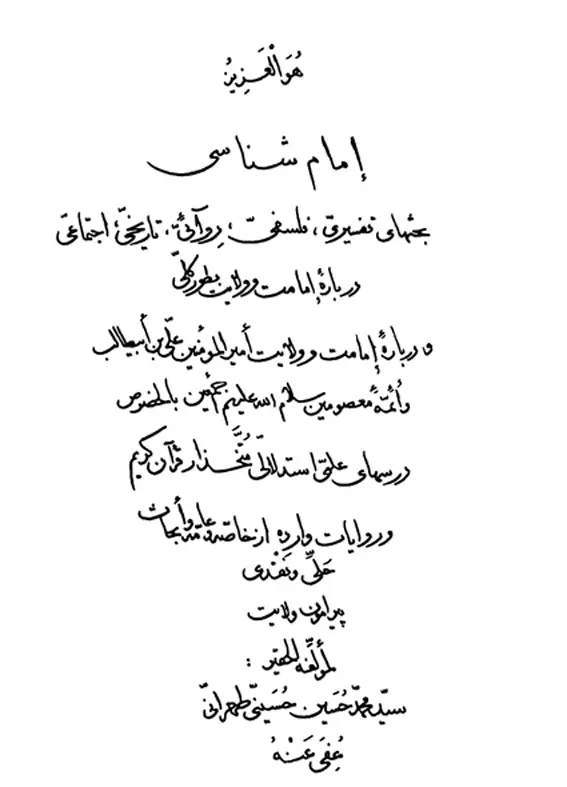 هُوَ الْعَزِيزُ
إمام شناسی
بحثهای تفسیری، فلسفیّ، رِوآئیّ، تاریخیّ، اجتماعیّ
دربارهٔ إمامت و ولایت بطور کلّیّ
و دربارهٔ إمامت و ولایت أمیرالمؤمنین علیّ بن أبیطالب
و أئمّهٔ معصومین سلام الله علیهم أجمعین بالخصوص
درسهای علمیّ استدلالیّ مُتَّخَذ از قرآن کریم
و روایات وارده از خاصّه و عامّه و أبحاث
حَلّیّ و نَقْدی
پیرامون ولایت
لمؤلّفه الحقیر :
سیّد محمّد حُسَین حُسَینیّ طهرانیّ
عُفِیَ عَنْهُ